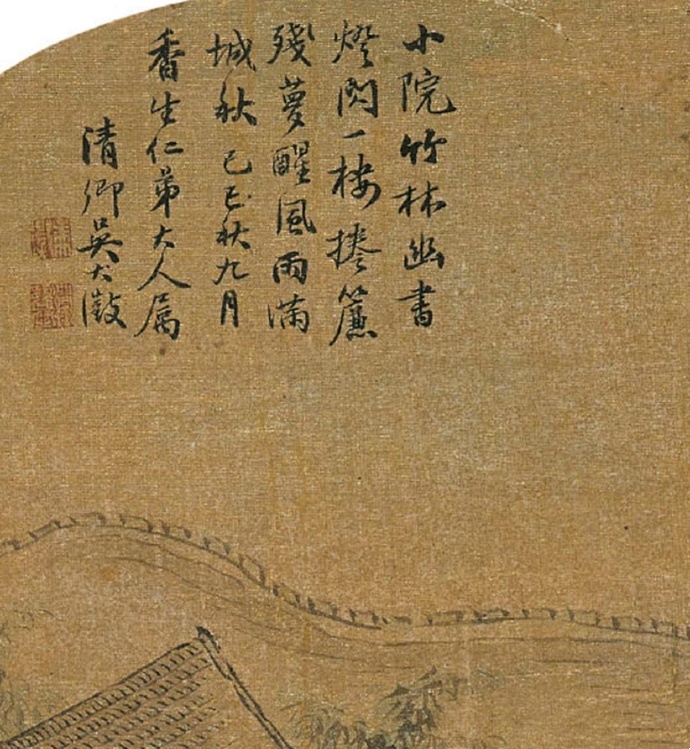 小院竹林幽書
燈閃一樓捲簾
殘夢醒風雨滿
城秋 己巳秋九月
香生仁弟大人属
清卿吳大澂